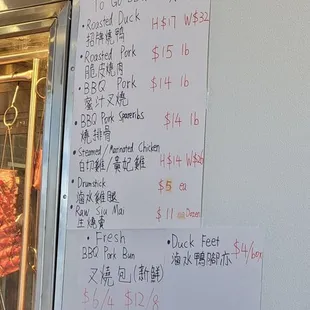 To Go
• Roasted Duck H$17 W$32
招牌燒鴨
• Roasted Pork $15 lb
脆皮燒肉
• BBQ Pork $14 lb
蜜汁叉燒
• BBQ Pork Spareribs $14 lb
燒排骨
• Steamed / Marinated Chicken
白切雞 / 黃記雞 H$14 W$26
• Drumstick $5 ea
滷水雞腿
• Raw Siu Mai $11 Dozen
生燒賣
• Fresh
BBQ Pork Bun
叉燒包 (新鮮)
$6/4 $12/8
• Duck Feet $4/box
滷水鴨腳